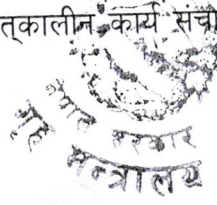 त्कालीन कार्य संचा
नेपाल सरकार
मन्त्रालय